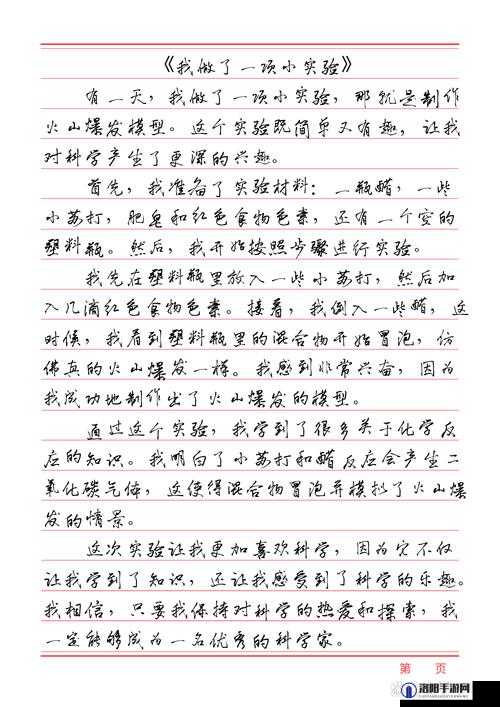 《我做了一项小实验》
有一天，我做了一项小实验，那就是制作
火山爆发模型。这个实验既简单又有趣，让我
对科学产生了更深的兴趣。
首先，我准备了实验材料：一瓶醋，一些
小苏打，肥皂和红色食物色素，还有一个空的
塑料瓶。然后，我开始按照步骤进行实验。
我先在塑料瓶里放入一些小苏打，然后加
入几滴红色食物色素。接着，我倒入一些醋，这
时候，我看到塑料瓶里的混合物开始冒泡，仿
佛真的火山爆发一样。我感到非常兴奋，因为
我成功地制作出了火山爆发的模型。
通过这个实验，我学到了很多关于化学反
应的知识。我明白了小苏打和醋反应会产生二
氧化碳气体，这使得混合物冒泡并模拟了火山爆
发的情景。
这次实验让我更加喜欢科学，因为它不仅
让我学到了知识，还让我感受到了科学的乐趣。
我相信，只要我保持对科学的热爱和探索，我
一定能够成为一名优秀的科学家。
第 页
洛阳手游网